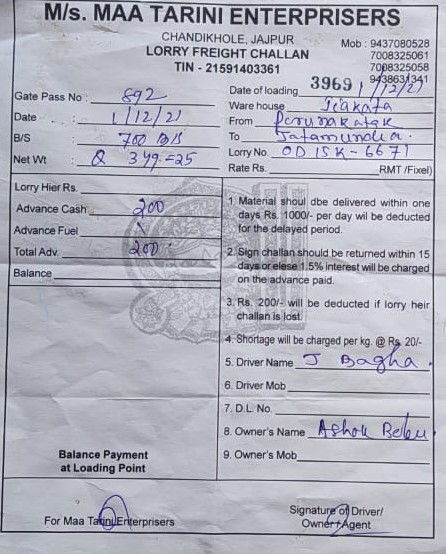 M/s. MAA TARINI ENTERPRISERS
CHANDIKHOLE, JAJPUR
LORRY FREIGHT CHALLAN
TIN - 21591403361
Mob : 9437080528
7008325061
7008325058
9438631341
3969
Gate Pass No : 892
Date : 1/12/21
B/S 700 B/S
Net Wt Q 349=25
Date of loading 1/12/21
Ware house
From
To Jatamundia.
Lorry No. OD 15K-6671
Rate Rs. RMT /Fixel)
Lorry Hier Rs.
Advance Cash 200
Advance Fuel
Total Adv. 200
Balance
1. Material shoul dbe delivered within one
days Rs. 1000/- per day wil be deducted
for the delayed period.
2. Sign challan should be returned within 15
days or elese 1.5% interest will be charged
on the advance paid.
3. Rs. 200/- will be deducted if lorry heir
challan is lost.
4. Shortage will be charged per kg. @ Rs. 20/-
5. Driver Name J Bagha.
6. Driver Mob
7. D.L. No.
8. Owner's Name Ashok
9. Owner's Mob
Balance Payment
at Loading Point
For Maa Tarini Enterprisers
Signature of Driver/
Owner+Agent